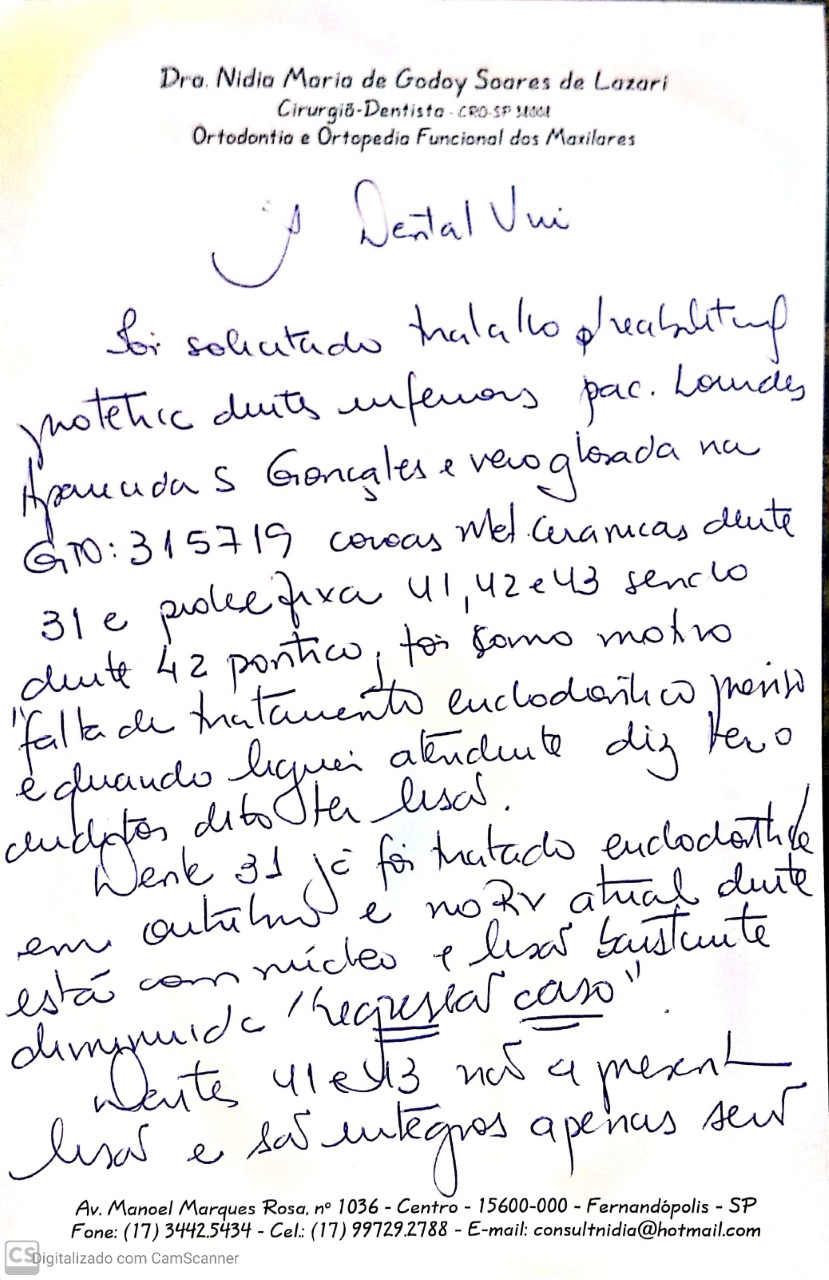 Dra. Nidia Maria de Godoy Soares de Lazari
Cirurgiã-Dentista - CRO-SP
Ortodontia e Ortopedia Funcional dos Maxilares
Dental Uni
Foi solicitado trabalho p/ reabilitaç
protetic dentes inferiores pac. Lourdes
Aparecida S Gonçales e veio glosada na
GTO: 315719 coroas Met. Ceramicas dente
31 e protese fixa 41, 42 e 43 sendo
dente 42 pontico, foi como motivo
"falta de tratamento endodontico previo
e quando liguei atendente diz
devido ter lesão.
Dente 31 já foi tratado endodonti
em outubro e no RX atual dente
está com núcleo e lesão bastante
diminuida "Regressão caso".
Dentes 41 e 43 não apresent
lesão e são integros apenas serã
Av. Manoel Marques Rosa, nº 1036 - Centro - 15600-000 - Fernandópolis - SP
Fone: (17) 3442.5434 - Cel.: (17) 99729.2788 - E-mail: consultnidia@hotmail.com
CS Digitalizado com CamScanner